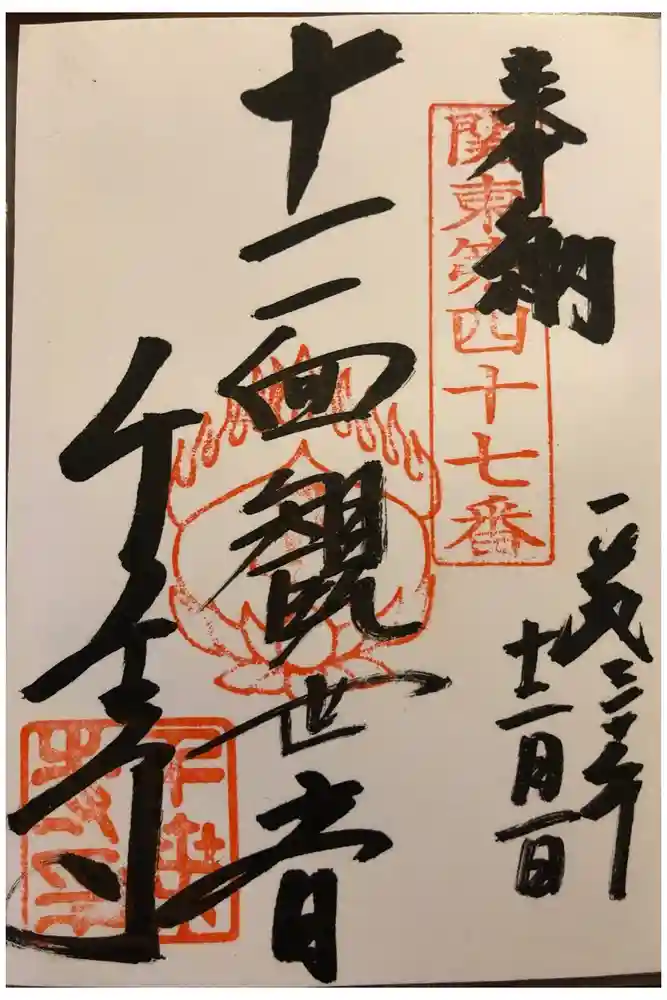 奉納
関東第四十七番
平成三十年
十二月一日
十一面観世音
千葉寺
千葉